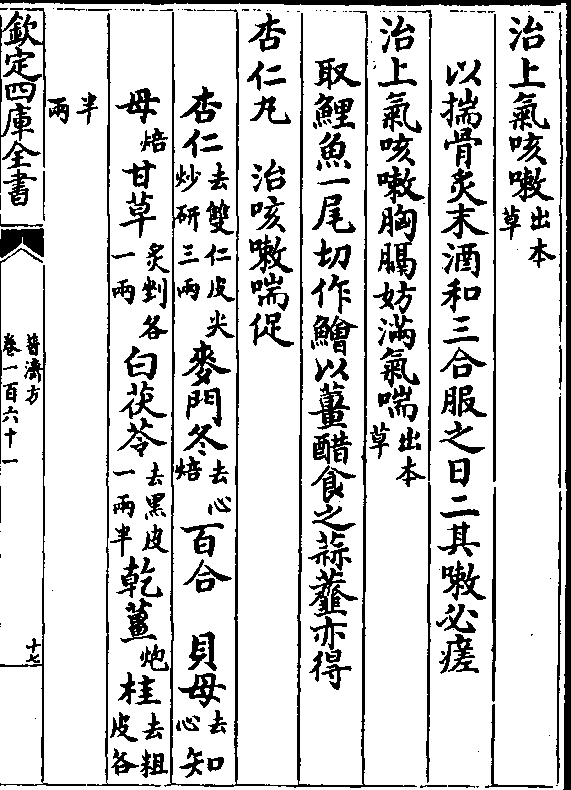 治上氣咳嗽出本草
以揣骨炙末酒和三合服之日二其嗽必瘥
治上氣咳嗽胸膈妨滿氣喘出本草
取鯉魚一尾切作鱠以薑醋食之蒜虀亦得
杏仁丸　治咳嗽喘促
杏仁去雙仁皮尖炒研三兩麥門冬去心焙百合　貝母去心知
母焙甘草炙剉各一兩白茯苓去黑皮一兩半乾薑炮桂去粗皮各
半兩
欽定四庫全書
普濟方
卷一百六十一
十七